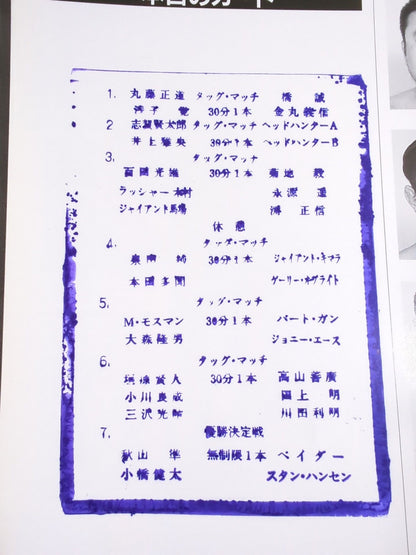 本日のカード
1. 丸藤正道 タッグ・マッチ 橋 誠
30分1本 金丸義信
2. 志賀賢太郎 タッグ・マッチ ヘッドハンターA
井上雅央 30分1本 ヘッドハンターB
3. タッグ・マッチ
百田光雄 30分1本 菊地 毅
ラッシャー木村 永源 遥
ジャイアント馬場 渕 正信
休憩
4. タッグ・マッチ
泉田 純 30分1本 ジャイアント・キマラ
本田多聞 ゲーリー・オブライト
5. タッグ・マッチ
M・モスマン 30分1本 バート・ガン
大森隆男 ジョニー・エース
6. タッグ・マッチ
垣原賢人 30分1本 高山善廣
小川良成 田上 明
三沢光晴 川田利明
7. 優勝決定戦
秋山 準 無制限1本 ベイダー
小橋健太 スタン・ハンセン